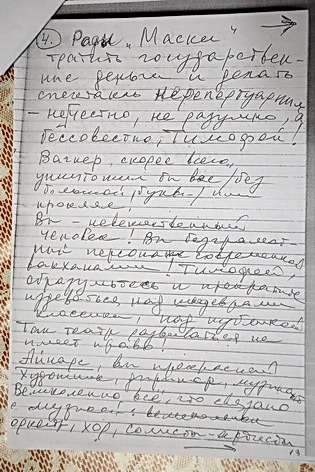 4. Ради „Маски"
тратить государствен-
ные деньги и делать
спектакли нерепертуарные
- нечестно, не разумно, а
бессовестно, Тимофей!
Вагнер, скорее всего,
уничтожил бы вас /без
большой буквы/ или
проклял!
Вы - невежественный
человек! Вы безграмот-
ный персонаж современной
вакханалии! Тимофей,
образумьтесь и прекратите
издеваться над шедеврами
классики, над публикой
Так театр развиваться не
имеет права!
Айнарс, вы прекрасный
художник, дирижер, музыкант
Великолепно все, что связано
с музыкой:
оркестр, хор, солисты-артисты
13